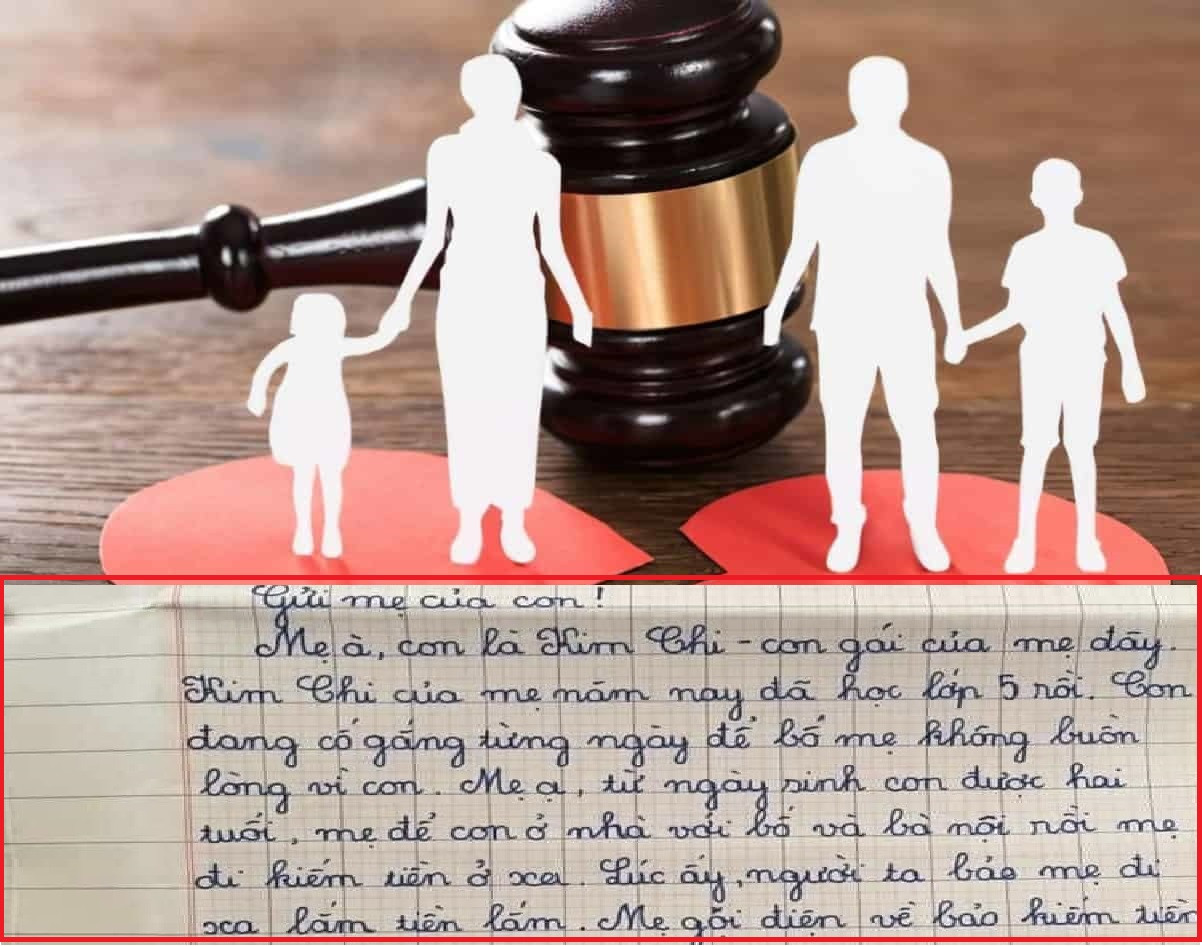 Gửi mẹ của con!
Mẹ à, con là Kim Chi - con gái của mẹ đây.
Kim Chi của mẹ năm nay đã học lớp 5 rồi. Con
đang cố gắng từng ngày để bố mẹ không buồn
lòng vì con. Mẹ ạ, từ ngày sinh con được hai
tuổi, mẹ để con ở nhà với bố và bà nội rồi mẹ
đi kiếm tiền ở xa. Lúc ấy, người ta bảo mẹ đi
xa lắm tiền lắm. Mẹ gọi điện về bảo kiếm tiền